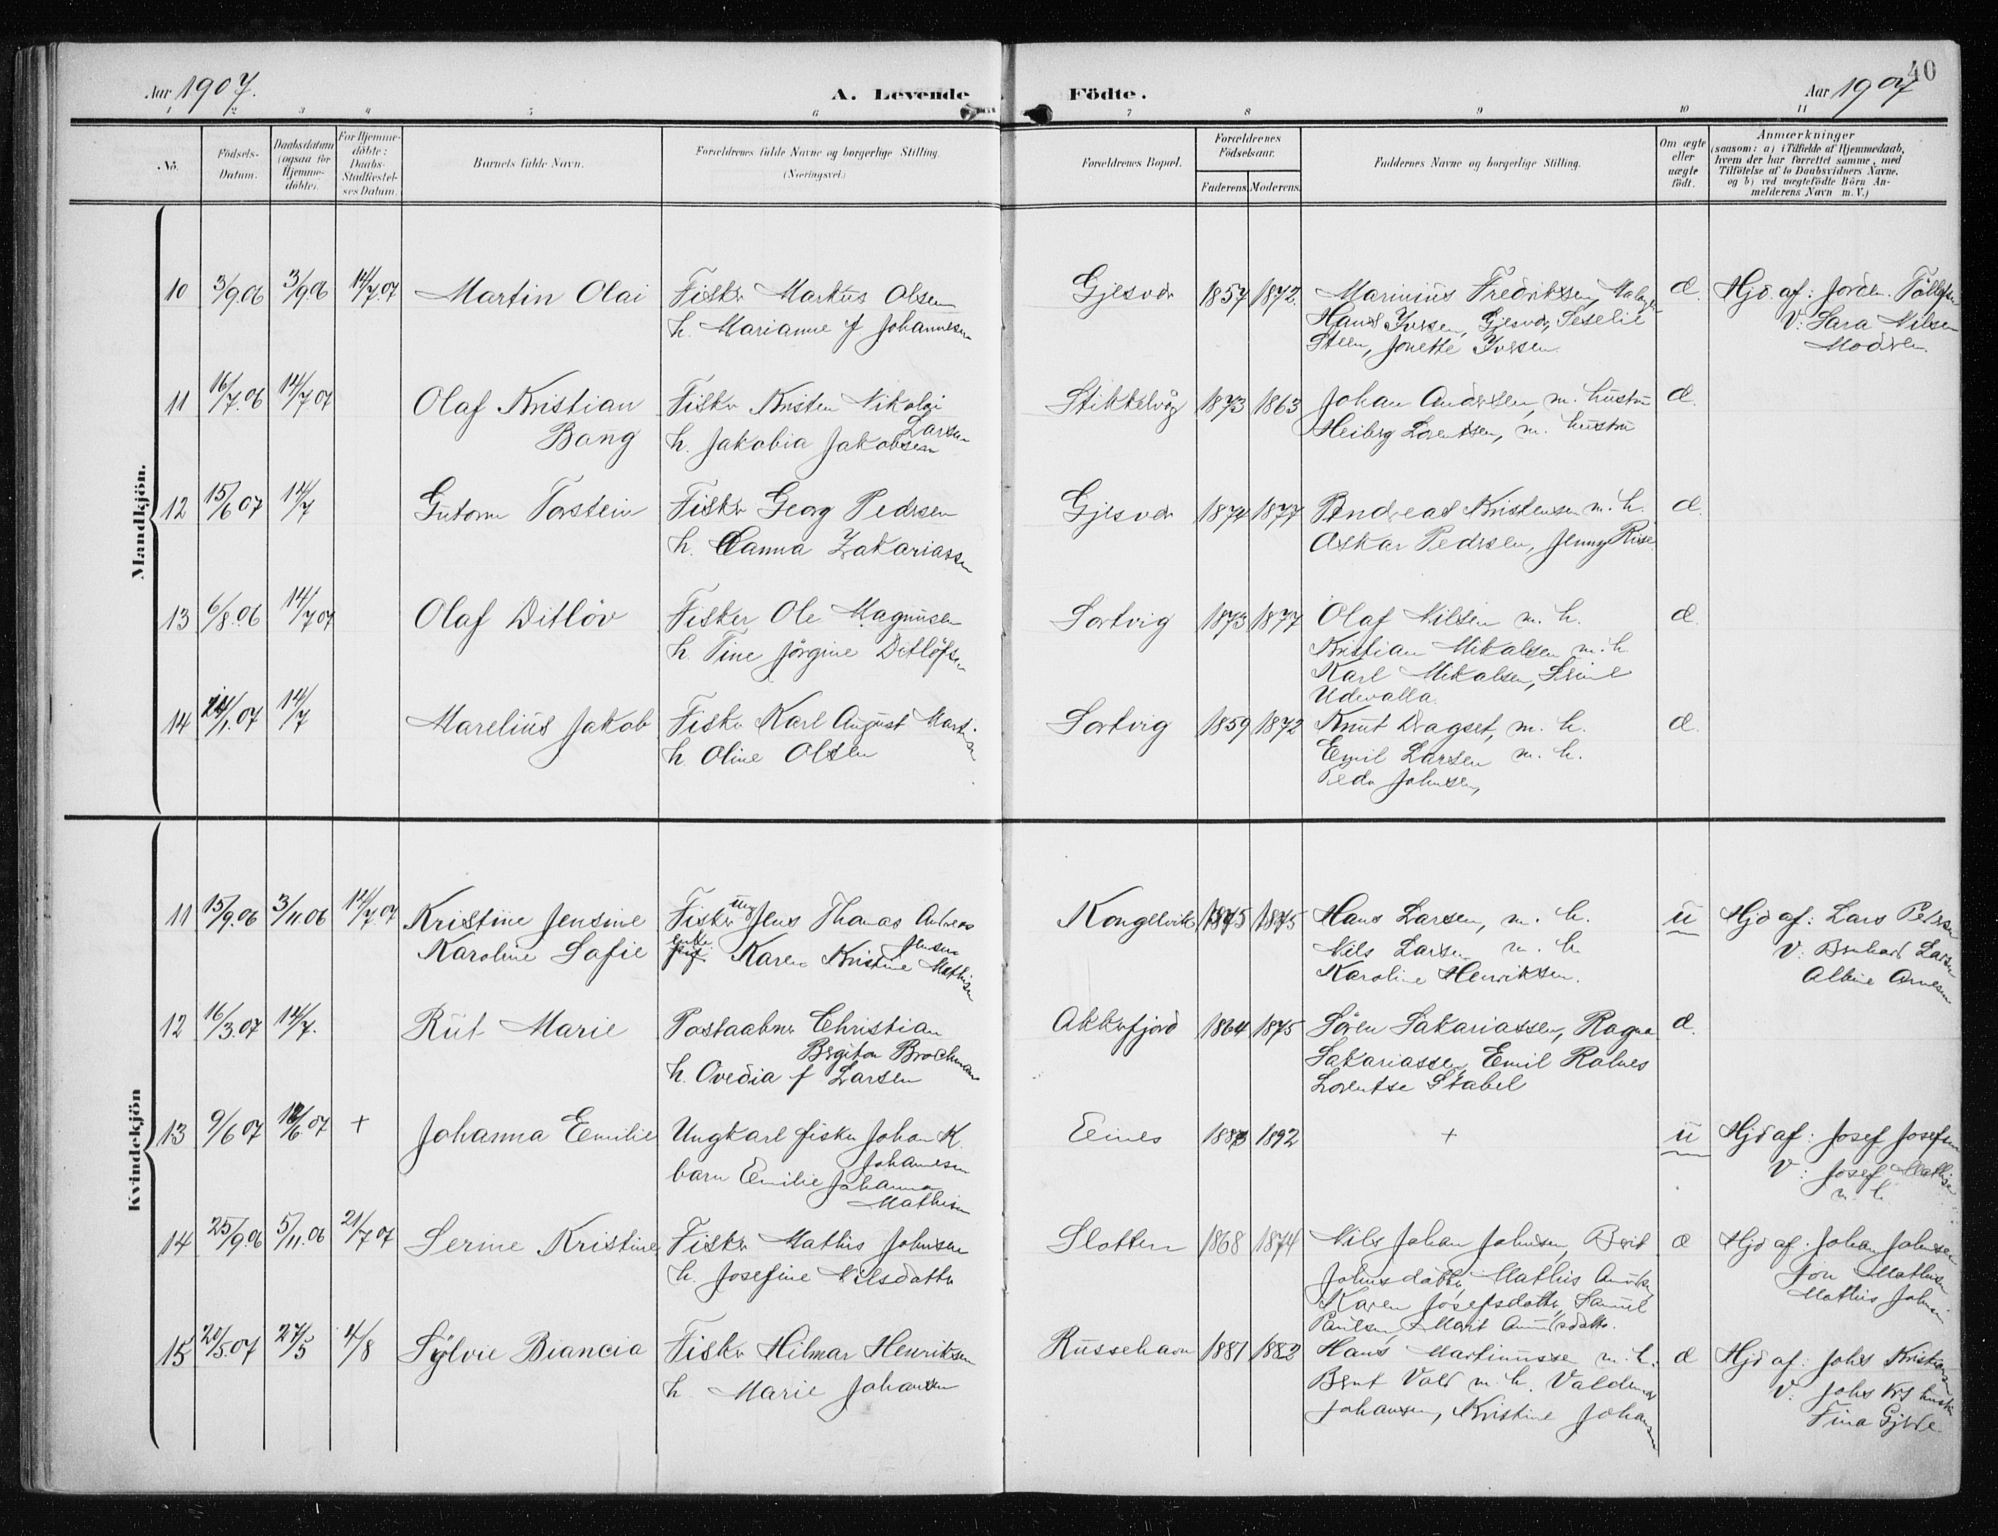 40
Aar 1907. A. Levende Födte. Aar 1907
1 2 3 4 5 6 7 8 9 10 11
No.
Födsels-
Datum.
Daabsdatum
(ogsaa for
Hjemme-
döbte).
For Hjemme-
döbte:
Daabs-
Stadfæstel-
ses Datum.
Barnets fulde Navn.
Forældrenes fulde Navne og borgerlige Stilling.
(Næringsvei.)
Forældrenes Bopæl.
Forældrenes
Födselsaar.
Faderens. Moderens.
Faddernes Navne og borgerlige Stilling.
Om ægte
eller
uægte
födt.
Anmærkninger
(saasom: a) i Tilfælde af Hjemmedaab,
hvem der har forrettet samme, med
Tilföielse af to Daabsvidners Navne.
og b) ved uægtefödte Börn An-
melderens Navn m. V.)
Mandkjön.
10 3/9.06 3/9.06 14/7.07 Martin Olai Fisker Markus Olsen Gjesvær 1857 1872. Marinius Fredriksen, æ. Hjd. af: Jörgen
h. Marianne f Johannesen Hans Iversen, Gjesvær, V: Sara Nilsen
Steen, Jonette Iversen. Modren.
11 16/7.06 14/7 07 Olaf Kristian Fisker Kristen Nikolai Stikkelvåg 1873 1863 Johan Andersen, m. hustru æ.
Bang Larsen
h. Jakobia Jakobsen Heiberg Lorentsen, m. hustru
12 15/6 07 14/7 Gutorm Torstein Fisker Georg Pedersen Gjesvær 1874 1877 Andreas Kristensen m. h. æ.
h. Canna Zakariassen Oskar Pedersen, Jenny Riise
13 6/8.06 14/7 07 Olaf Ditlöv Fisker Ole Magnusen Sortvig 1873 1877 Olaf Nilsen m. h. æ.
h. Tine Jörgine Ditlöfsen Kristian Mikalsen m. h.
Karl Mikalsen,
Udevalla.
14 /1.07 14/7 Marelius Jakob Fisker Karl August Sortvig 1859 1872 Knut Dragset, m. h. æ.
h. Oline Olsen Emil Larsen m. h.
Peder Johnsen,
Kvindekjön
11 15/9.06 3/11.06 14/7.07 Kristine Jensine Fisker Jens Thomas Andreas Kongelvik 1875 1875 Hans Larsen, m. h. ü Hjd af: Lars Petersen
Karoline Sofie Jensen
enke Karen Kristine Mathisen Nils Larsen m. h V: Bernhard Larsen
Karoline Henriksen. Albine Arnesen
12 16/3.07 14/7. Rut Marie Postaabner Christian Akkerfjord 1864 1875 Sören Sakariassen, Ragna æ.
Bergiton Brochmann Sakariassen, Emil Rolnes
h. Ovedia f Larsen Lorentse Stabel
13 9/6 07 /6.07 + Johanna Emilie Ungkarl fisker Johan K. Eines 1883 1892 + ü Hjd af: Josef Josefsen
Johannesen V: Josef Mathisen
barn Emilie Johanna m. h
Mathisen
14 25/9.06 5/11.06 21/7 07 Serine Kristine Fisker Mathis Johnsen Slotten 1868 1874 Nils Johan Johnsen, Berit æ Hjd af: Johan Johnsen
h. Josefine Nilsdatter Johnsdatter, Mathis Jon Mathisen
Karen Josefsdatter, Samuel Mathis Johnsen
Paulsen, Marit
15 /5.07 27/5 4/8 Sylvie Biancia Fisker Hilmar Henriksen Russehavn 1881 1882 Hans Martinussen m. h. æ Hjd af: Johs Kristiansen
h. Marie Johansen Bernt Vold m h. Valdemar V: Johs Krs hustru
Johansen, Kristine Johansen Fina Gjerde